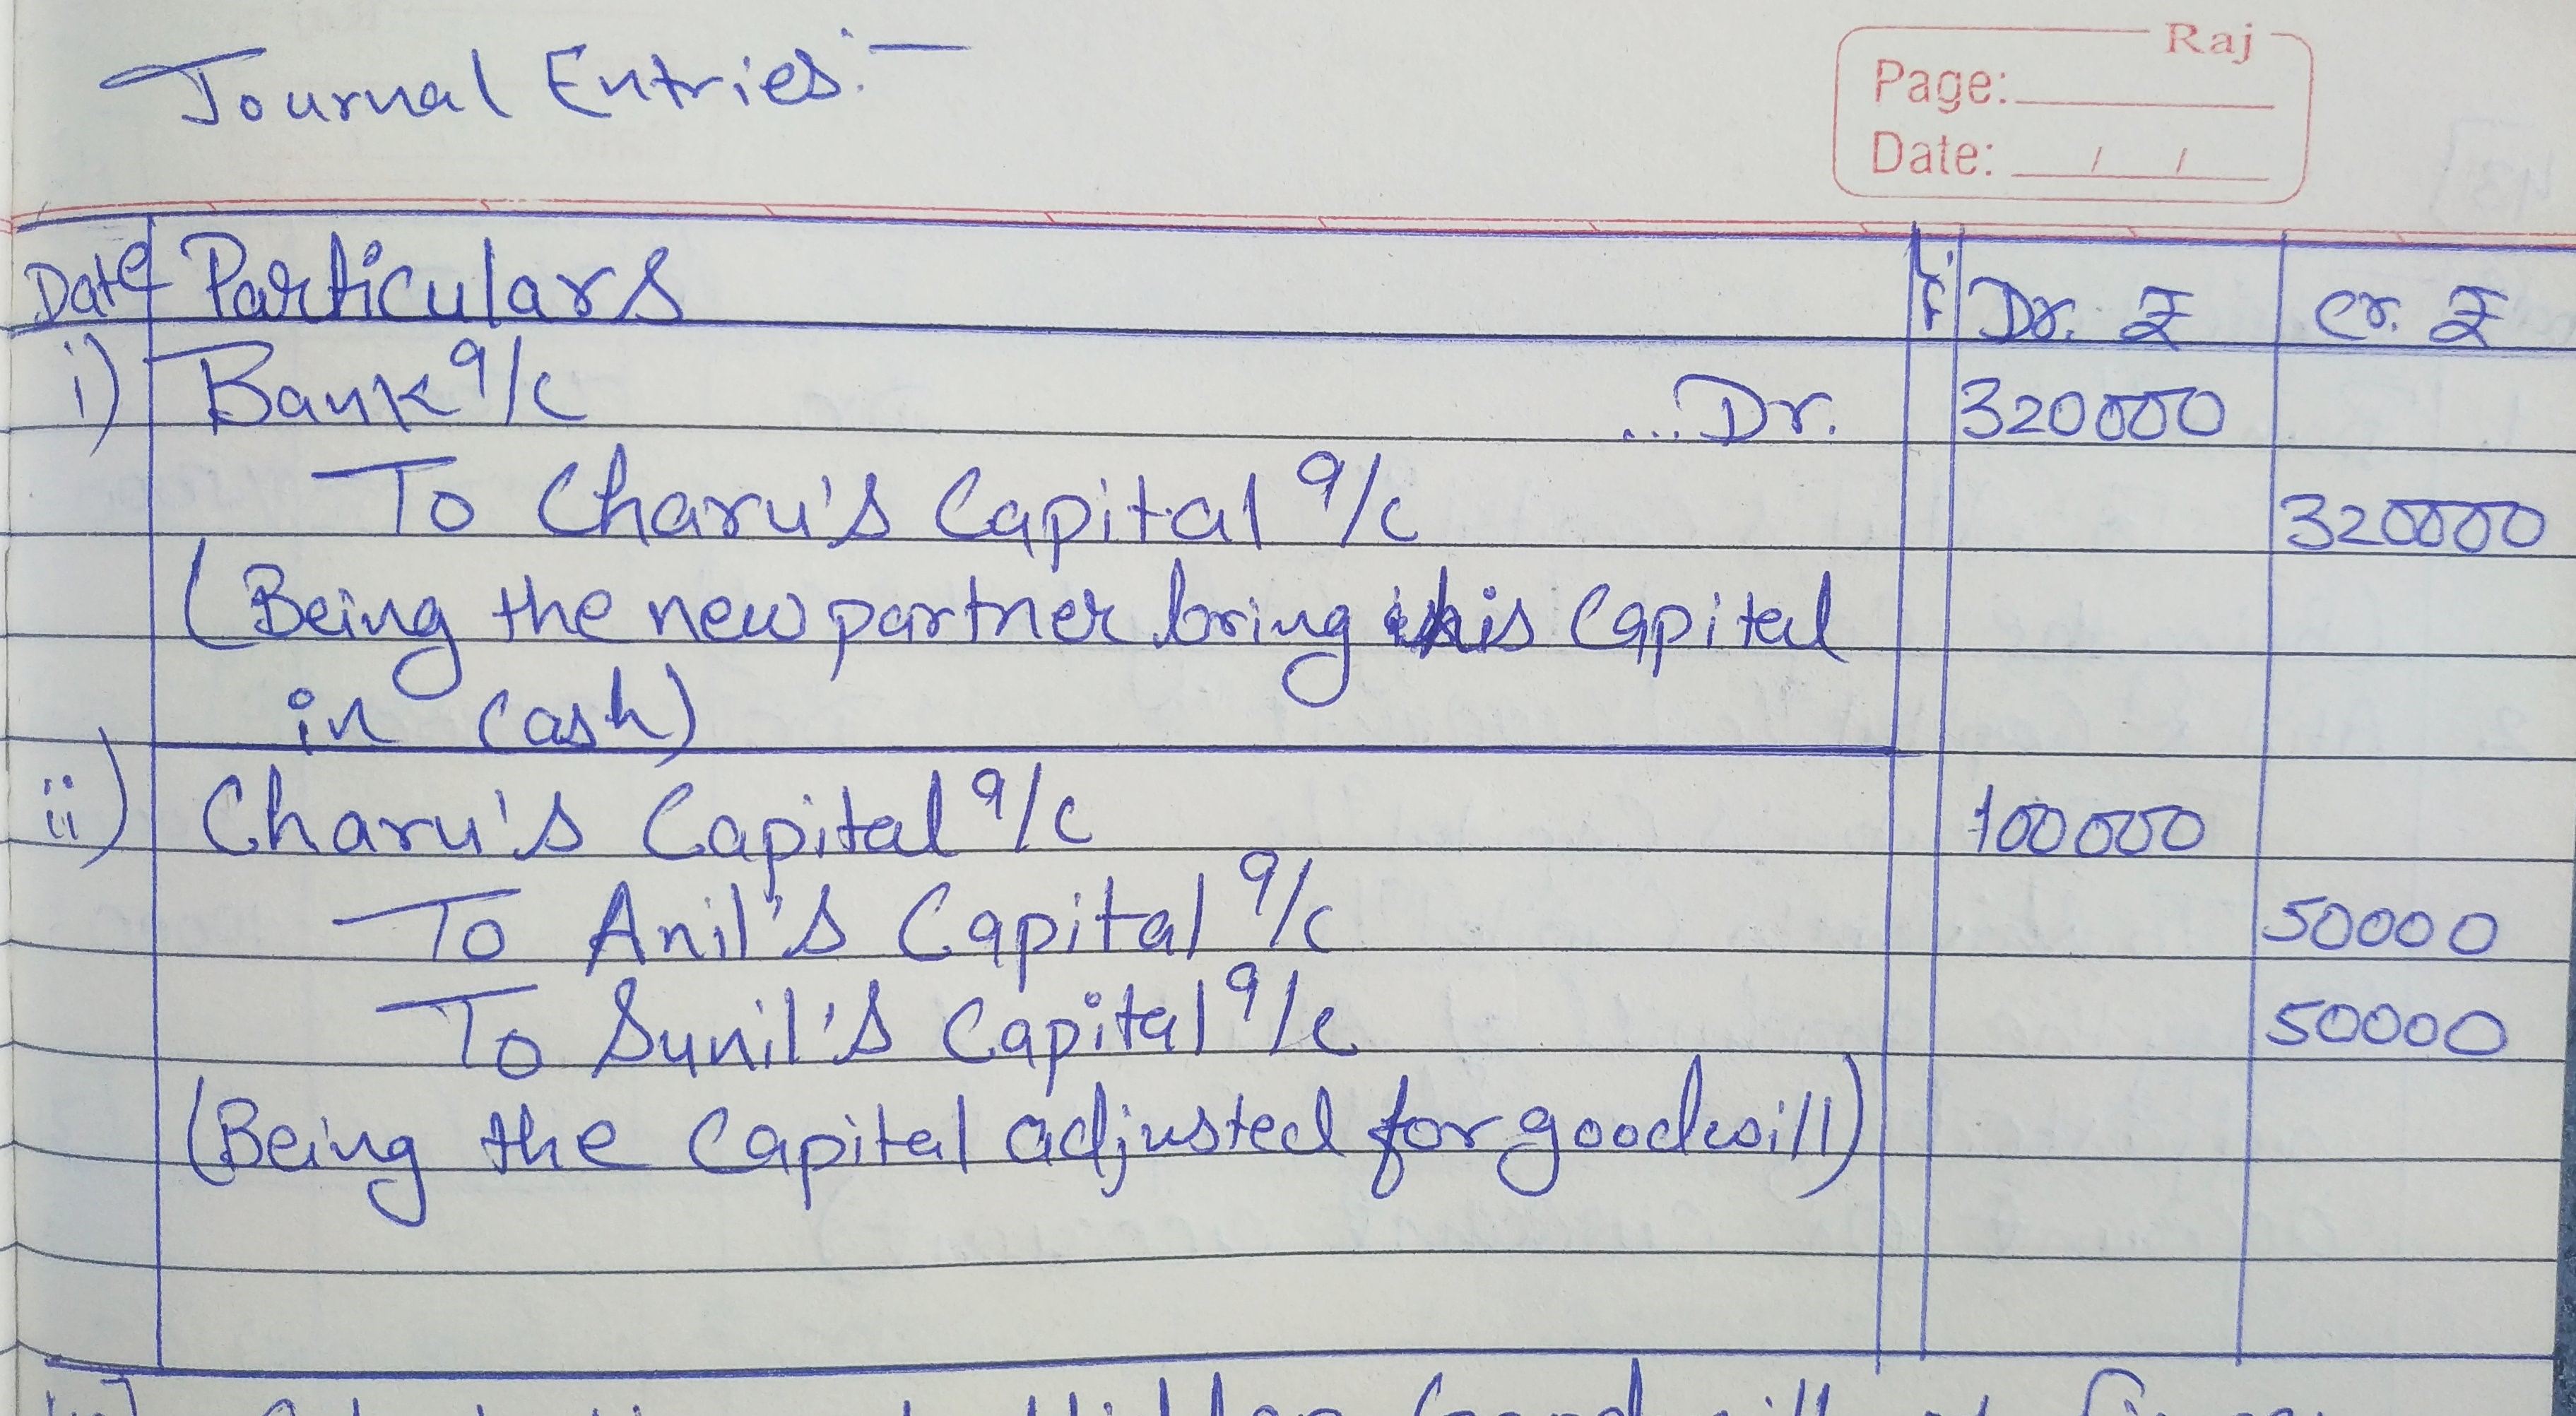 Journal Entries:-
Raj
Page:
Date: / /
Date Particulars L.F Dr. ₹ Cr. ₹
i) Bank a/c ...Dr. 320000
To Charu's Capital a/c 320000
(Being the new partner bring his Capital
in cash)
ii) Charu's Capital a/c 100000
To Anil's Capital a/c 50000
To Sunil's Capital a/c 50000
(Being the Capital adjusted for goodwill)